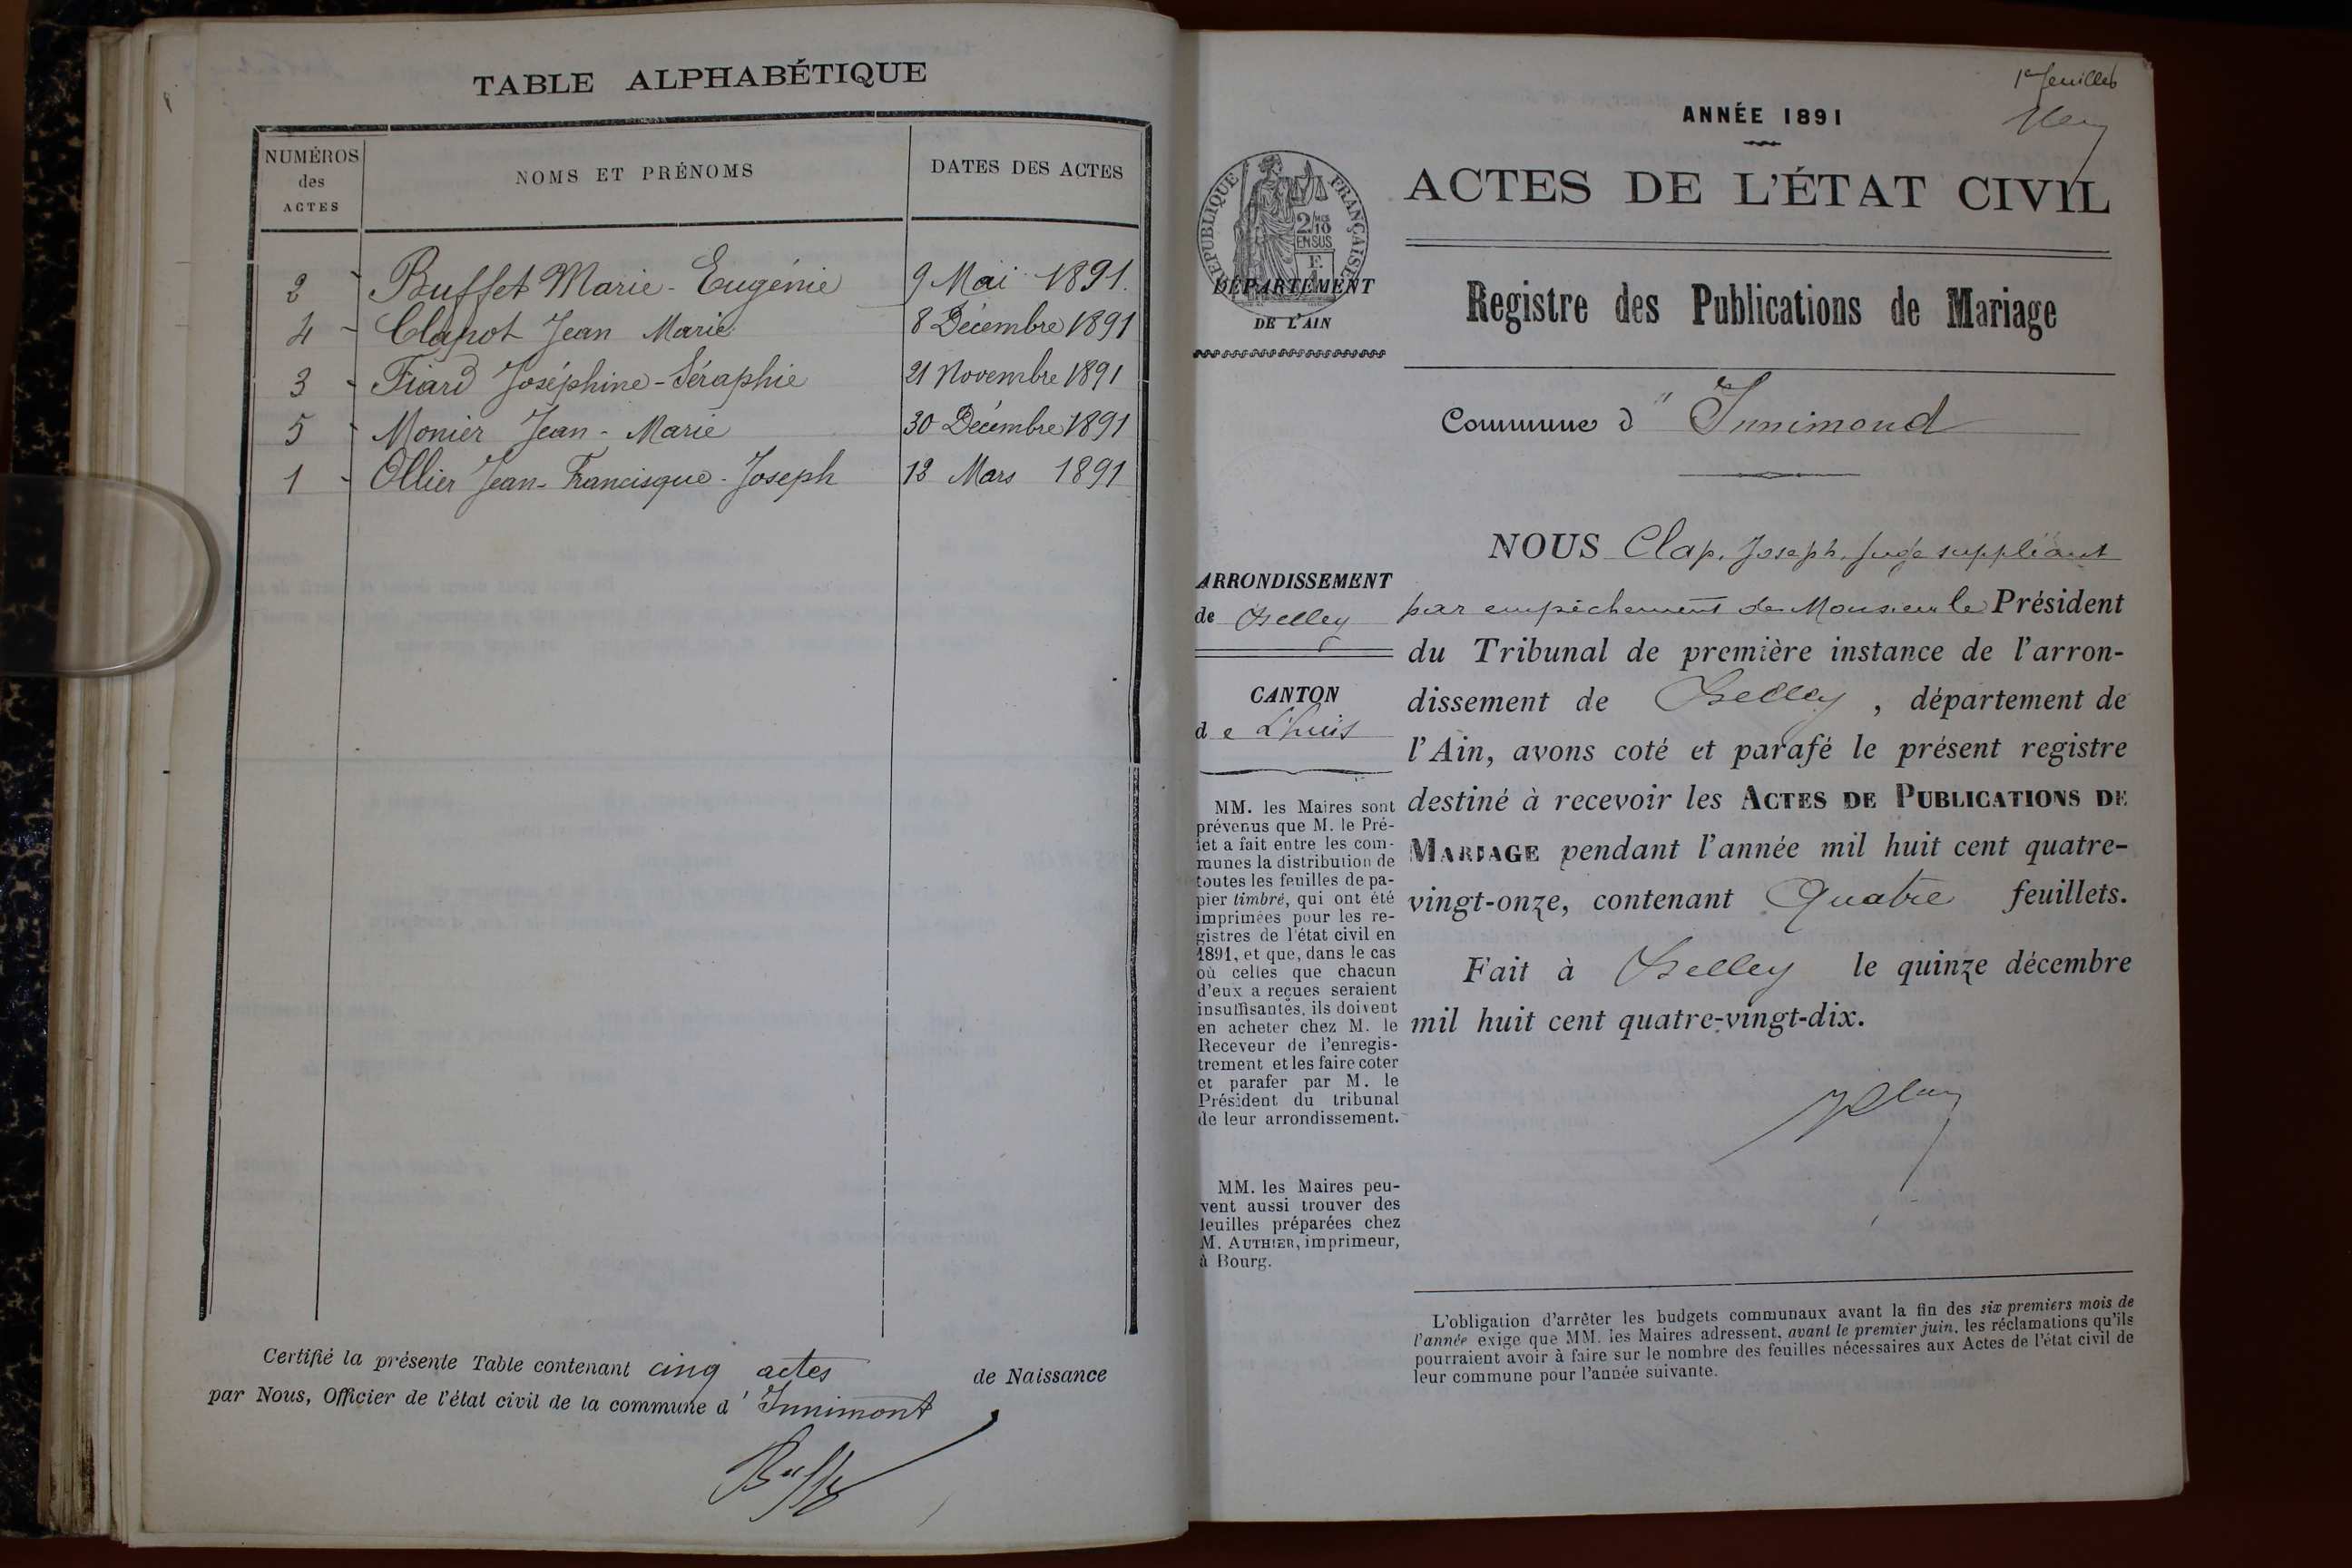 TABLE ALPHABÉTIQUE
NUMÉROS des ACTES
NOMS ET PRÉNOMS
DATES DES ACTES
2 - Buffet Marie-Eugénie 9 Mai 1891.
4 - Clapot Jean Marie 8 Décembre 1891
3 - Fiard Joséphine-Séraphie 21 Novembre 1891
5 - Monier Jean-Marie 30 Décembre 1891
1 - Ollier Jean-Francisque-Joseph 12 Mars 1891
Certifié la présente Table contenant cinq actes de Naissance
par Nous, Officier de l'état civil de la commune d' Innimont
1er feuillet
ANNÉE 1891
ACTES DE L'ÉTAT CIVIL
RÉPUBLIQUE FRANÇAISE
2/10
EN SUS
DÉPARTEMENT
DE L'AIN
Registre des Publications de Mariage
Commune d'' Innimond
ARRONDISSEMENT
de Belley
CANTON
de Lhuis
MM. les Maires sont
prévenus que M. le Pré-
fet a fait entre les com-
munes la distribution de
toutes les feuilles de pa-
pier timbré, qui ont été
imprimées pour les re-
gistres de l'état civil en
1891, et que, dans le cas
où celles que chacun
d'eux a reçues seraient
insuffisantes, ils doivent
en acheter chez M. le
Receveur de l'enregis-
trement et les faire coter
et parafer par M. le
Président du tribunal
de leur arrondissement.
MM. les Maires peu-
vent aussi trouver des
feuilles préparées chez
M. AUTHIER, imprimeur,
à Bourg.
NOUS Clap, Joseph, Juge suppléant
par empêchement de Monsieur le Président
du Tribunal de première instance de l'arron-
dissement de Belley, département de
l'Ain, avons coté et parafé le présent registre
destiné à recevoir les ACTES DE PUBLICATIONS DE
MARIAGE pendant l'année mil huit cent quatre-
vingt-onze, contenant Quatre feuillets.
Fait à Belley le quinze décembre
mil huit cent quatre-vingt-dix.
L'obligation d'arrêter les budgets communaux avant la fin des six premiers mois de
l'année exige que MM. les Maires adressent, avant le premier juin, les réclamations qu'ils
pourraient avoir à faire sur le nombre des feuilles nécessaires aux Actes de l'état civil de
leur commune pour l'année suivante.